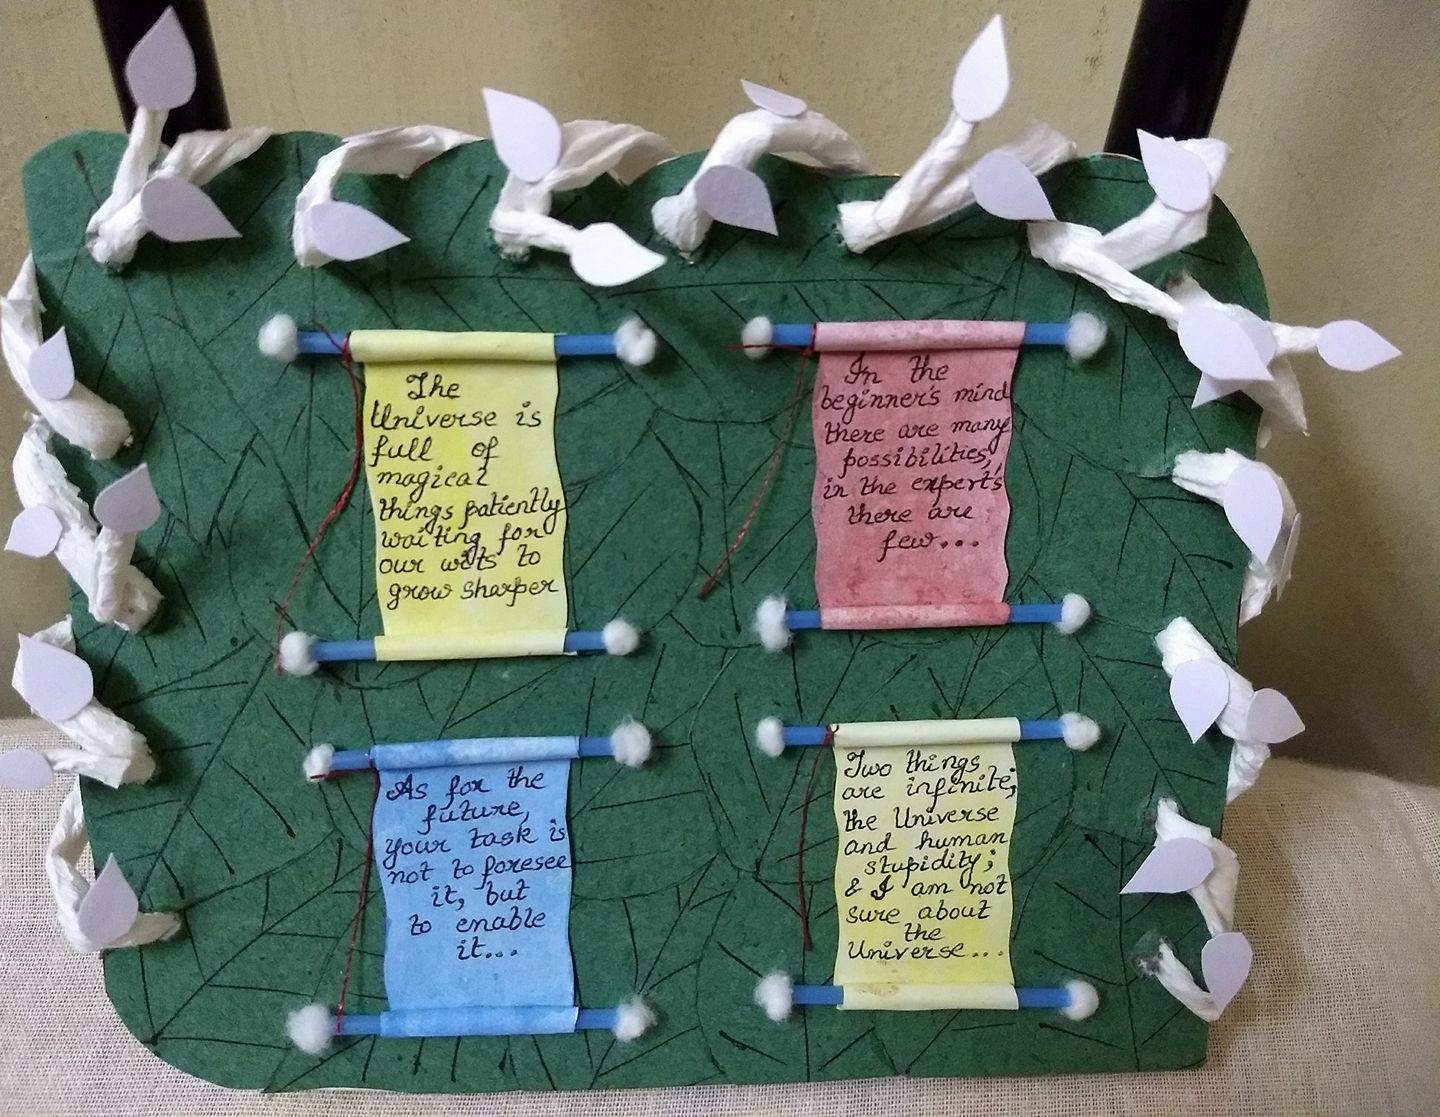 The
Universe is
full of
magical
things patiently
waiting for
our wits to
grow sharper
In the
beginner's mind
there are many
possibilities,
in the expert's
there are
few...
As for the
future,
your task is
not to foresee
it, but
to enable
it...
Two things
are infinite;
the Universe
and human
stupidity;
& I am not
sure about
the
Universe...